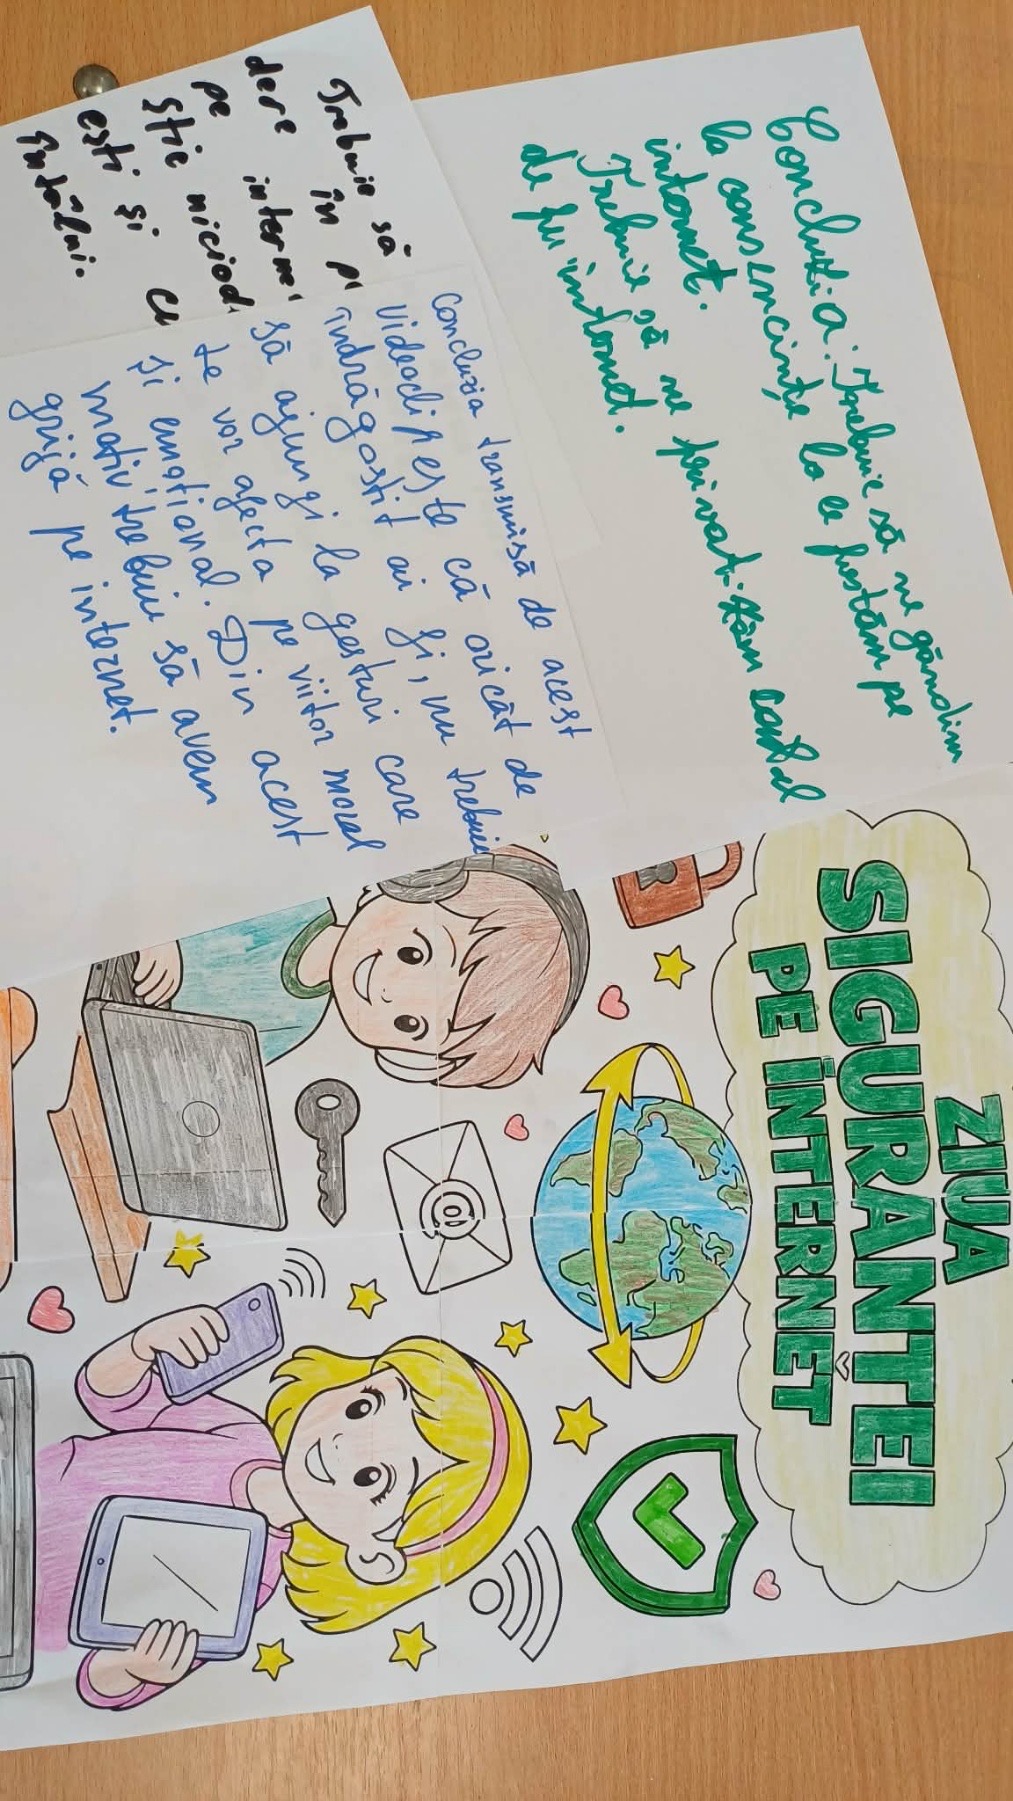 Trebuie să
dere în
pe interne
știe niciod
ești și cu
întâlni.
Concluzia: Trebuie să ne gândim
la consencințe la ce postăm pe
internet.
Trebuie să ne privat. tăm contul
de pe internet.
Concluzia transmisă de acest
videoclip este că oricât de
îndrăgostit ai fi, nu trebuie
să ajungi la gesturi care
te vor afecta pe viitor moral
și emoțional. Din acest
motiv, trebuie să avem
grijă pe internet.
ZIUA
SIGURANȚEI
PE INTERNET
@